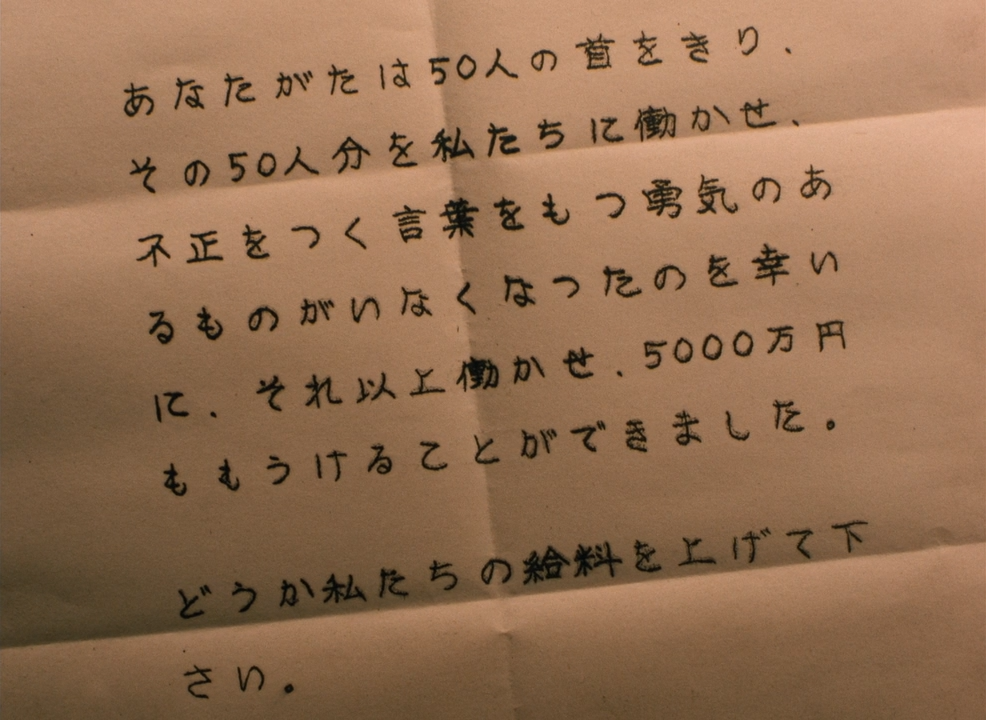 あなたがたは50人の首をきり、
その50人分を私たちに働かせ、
不正をつく言葉をもつ勇気のあ
るものがいなくなったのを幸い
に、それ以上働かせ、5000万円
ももうけることができました。
どうか私たちの給料を上げて下
さい。